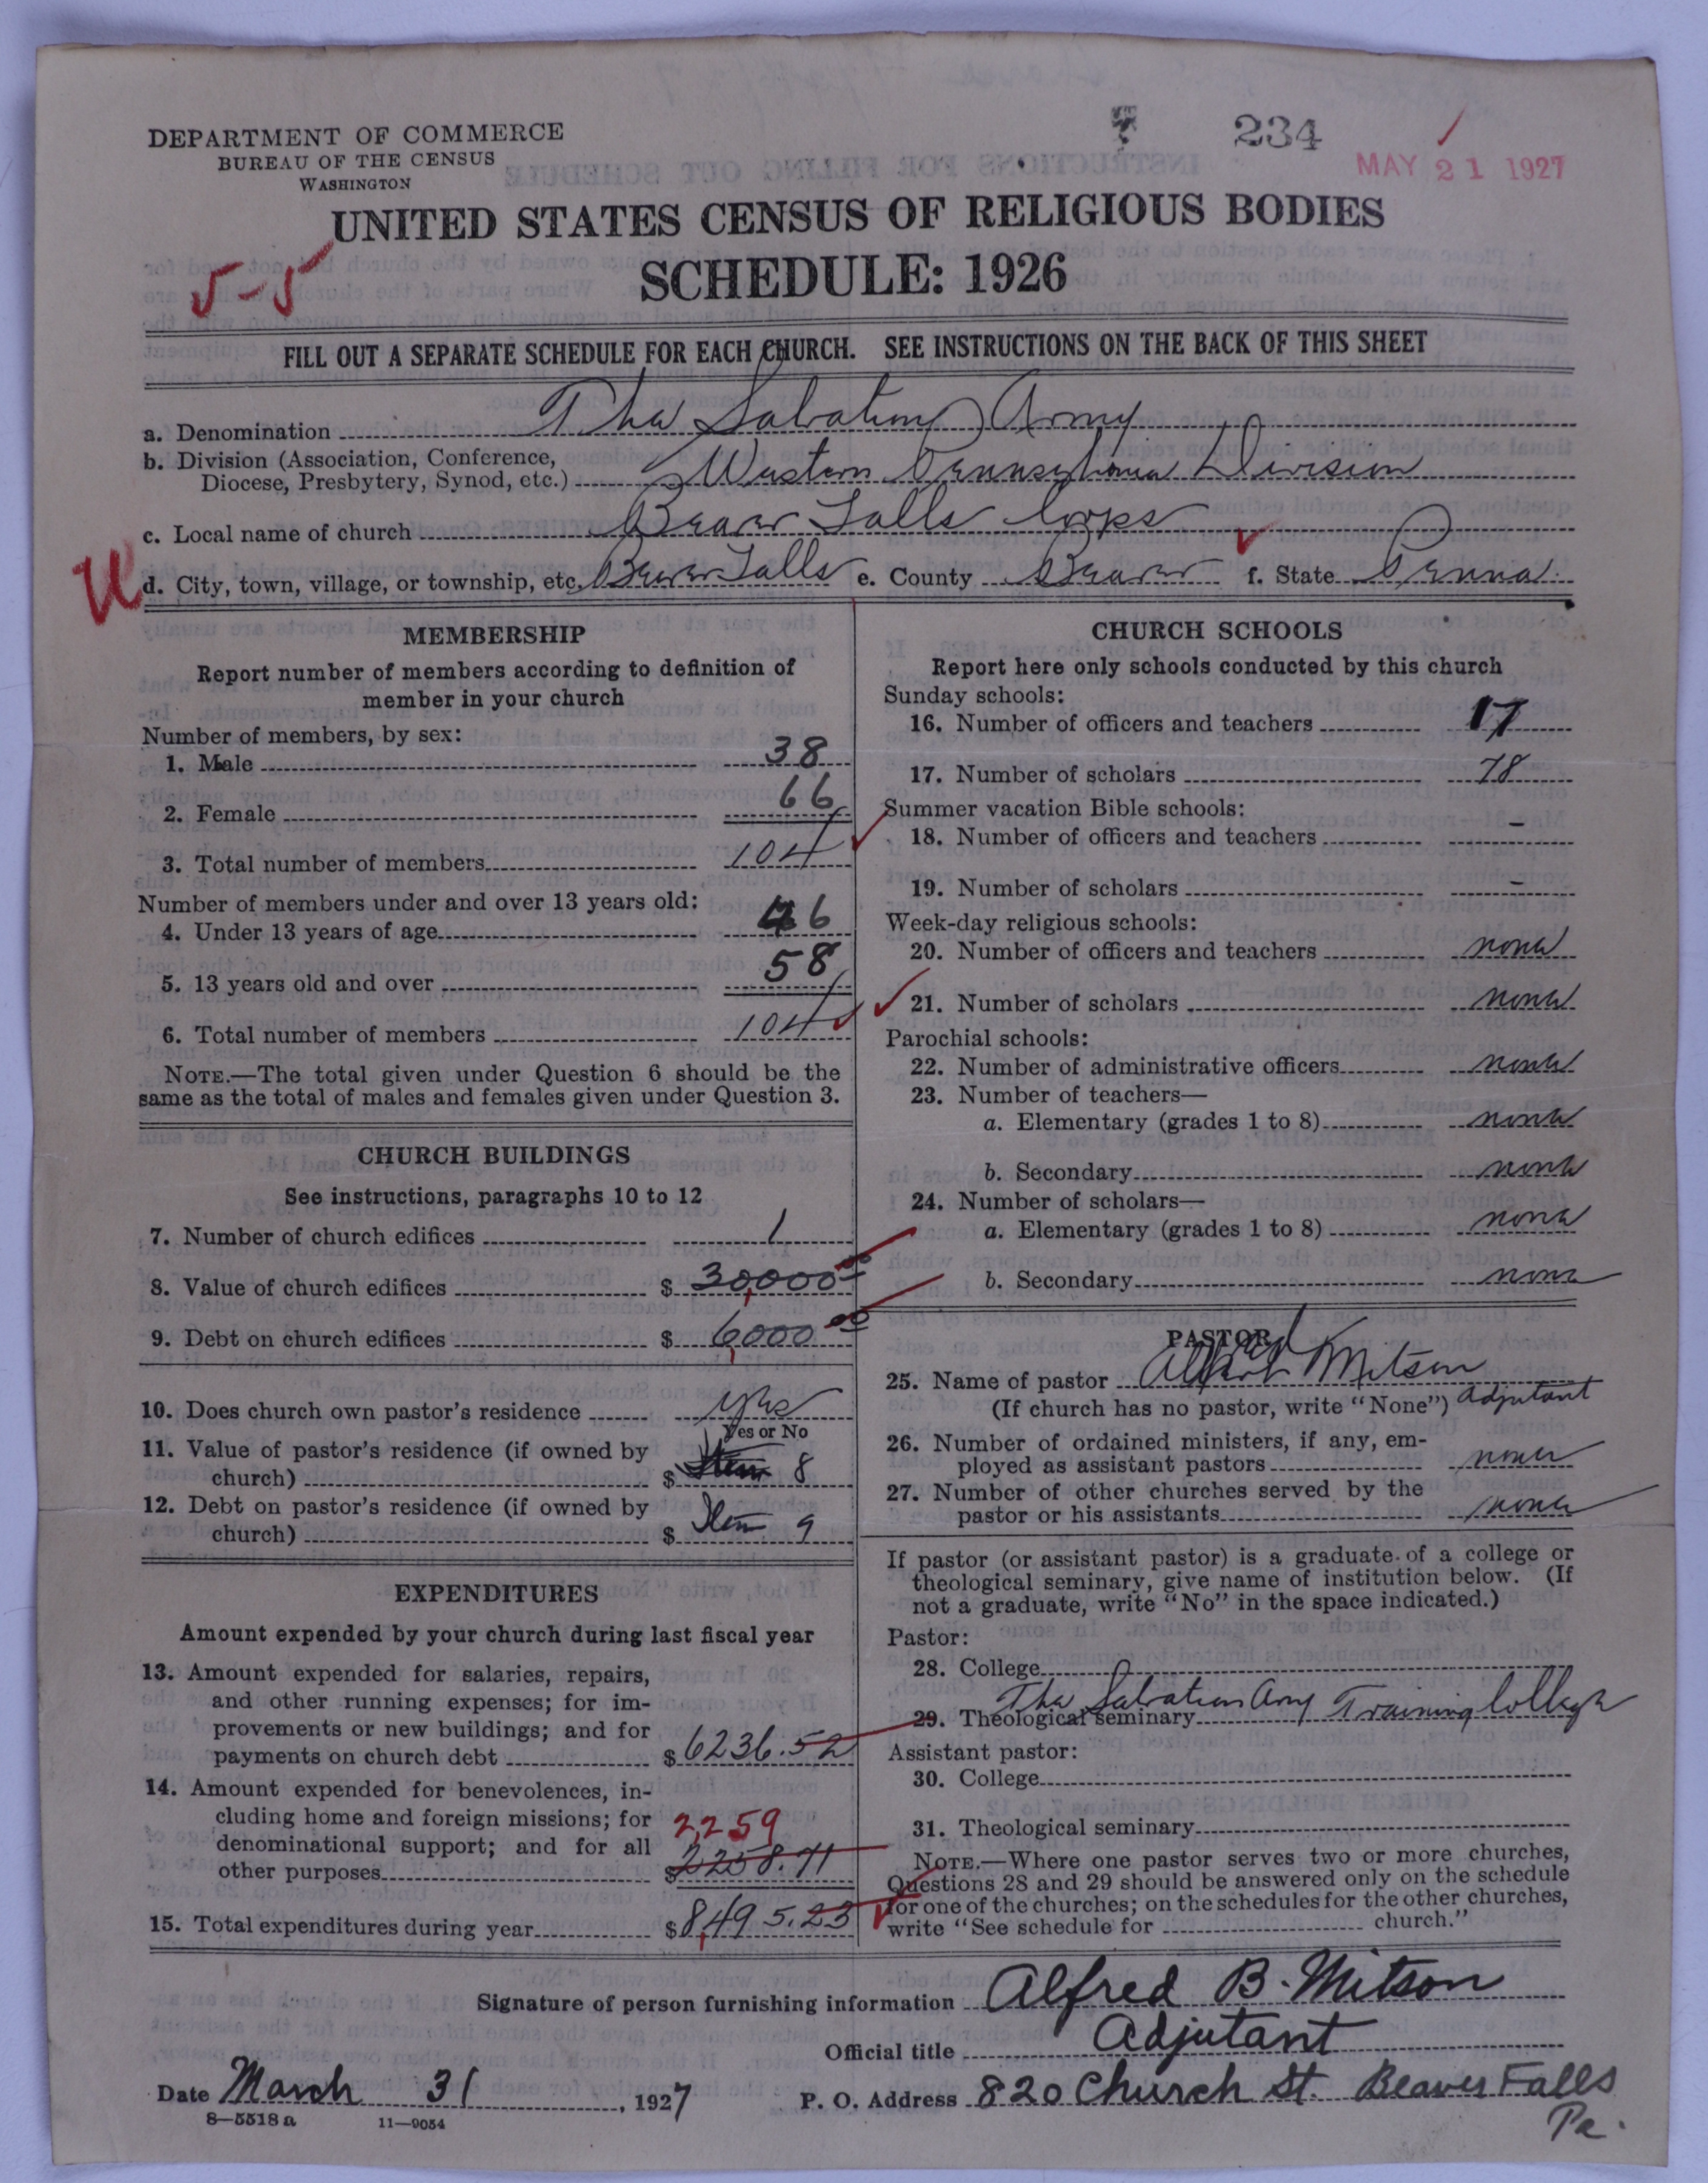 DEPARTMENT OF COMMERCE
BUREAU OF THE CENSUS
WASHINGTON
234
MAY 21 1927
UNITED STATES CENSUS OF RELIGIOUS BODIES
SCHEDULE: 1926
5-5
FILL OUT A SEPARATE SCHEDULE FOR EACH CHURCH. SEE INSTRUCTIONS ON THE BACK OF THIS SHEET
a. Denomination The Salvation Army
b. Division (Association, Conference,
Diocese, Presbytery, Synod, etc.) Western Pennsylvania Division
c. Local name of church Beaver Falls Corps
d. City, town, village, or township, etc. Beaver Falls e. County Beaver f. State Penna.
MEMBERSHIP
Report number of members according to definition of
member in your church
Number of members, by sex:
1. Male 38
2. Female 66
3. Total number of members 104
Number of members under and over 13 years old:
4. Under 13 years of age 46
5. 13 years old and over 58
6. Total number of members 104
NOTE.—The total given under Question 6 should be the
same as the total of males and females given under Question 3.
CHURCH BUILDINGS
See instructions, paragraphs 10 to 12
7. Number of church edifices 1
8. Value of church edifices $ 30,000 00
9. Debt on church edifices $ 6,000 00
10. Does church own pastor's residence yes
Yes or No
11. Value of pastor's residence (if owned by
church) $ Item 8
12. Debt on pastor's residence (if owned by
church) $ Item 9
EXPENDITURES
Amount expended by your church during last fiscal year
13. Amount expended for salaries, repairs,
and other running expenses; for im-
provements or new buildings; and for
payments on church debt $ 6236.52
14. Amount expended for benevolences, in-
cluding home and foreign missions; for
denominational support; and for all
other purposes 2,259
$ 2258.71
15. Total expenditures during year $ 8,495.23
CHURCH SCHOOLS
Report here only schools conducted by this church
Sunday schools:
16. Number of officers and teachers 17
17. Number of scholars 78
Summer vacation Bible schools:
18. Number of officers and teachers -
19. Number of scholars -
Week-day religious schools:
20. Number of officers and teachers none
21. Number of scholars none
Parochial schools:
22. Number of administrative officers none
23. Number of teachers—
a. Elementary (grades 1 to 8) none
b. Secondary none
24. Number of scholars—
a. Elementary (grades 1 to 8) none
b. Secondary none
PASTOR
25. Name of pastor Alfred Mitson
(If church has no pastor, write "None") Adjutant
26. Number of ordained ministers, if any, em-
ployed as assistant pastors none
27. Number of other churches served by the
pastor or his assistants none
If pastor (or assistant pastor) is a graduate of a college or
theological seminary, give name of institution below. (If
not a graduate, write "No" in the space indicated.)
Pastor:
28. College
29. Theological seminary The Salvation Army Training College
Assistant pastor:
30. College
31. Theological seminary
NOTE.—Where one pastor serves two or more churches,
Questions 28 and 29 should be answered only on the schedule
for one of the churches; on the schedules for the other churches,
write "See schedule for church."
Signature of person furnishing information Alfred B. Mitson
Official title Adjutant
Date March 31, 1927 P. O. Address 820 Church St. Beaver Falls
Pa.
8—5518 a 11—9054